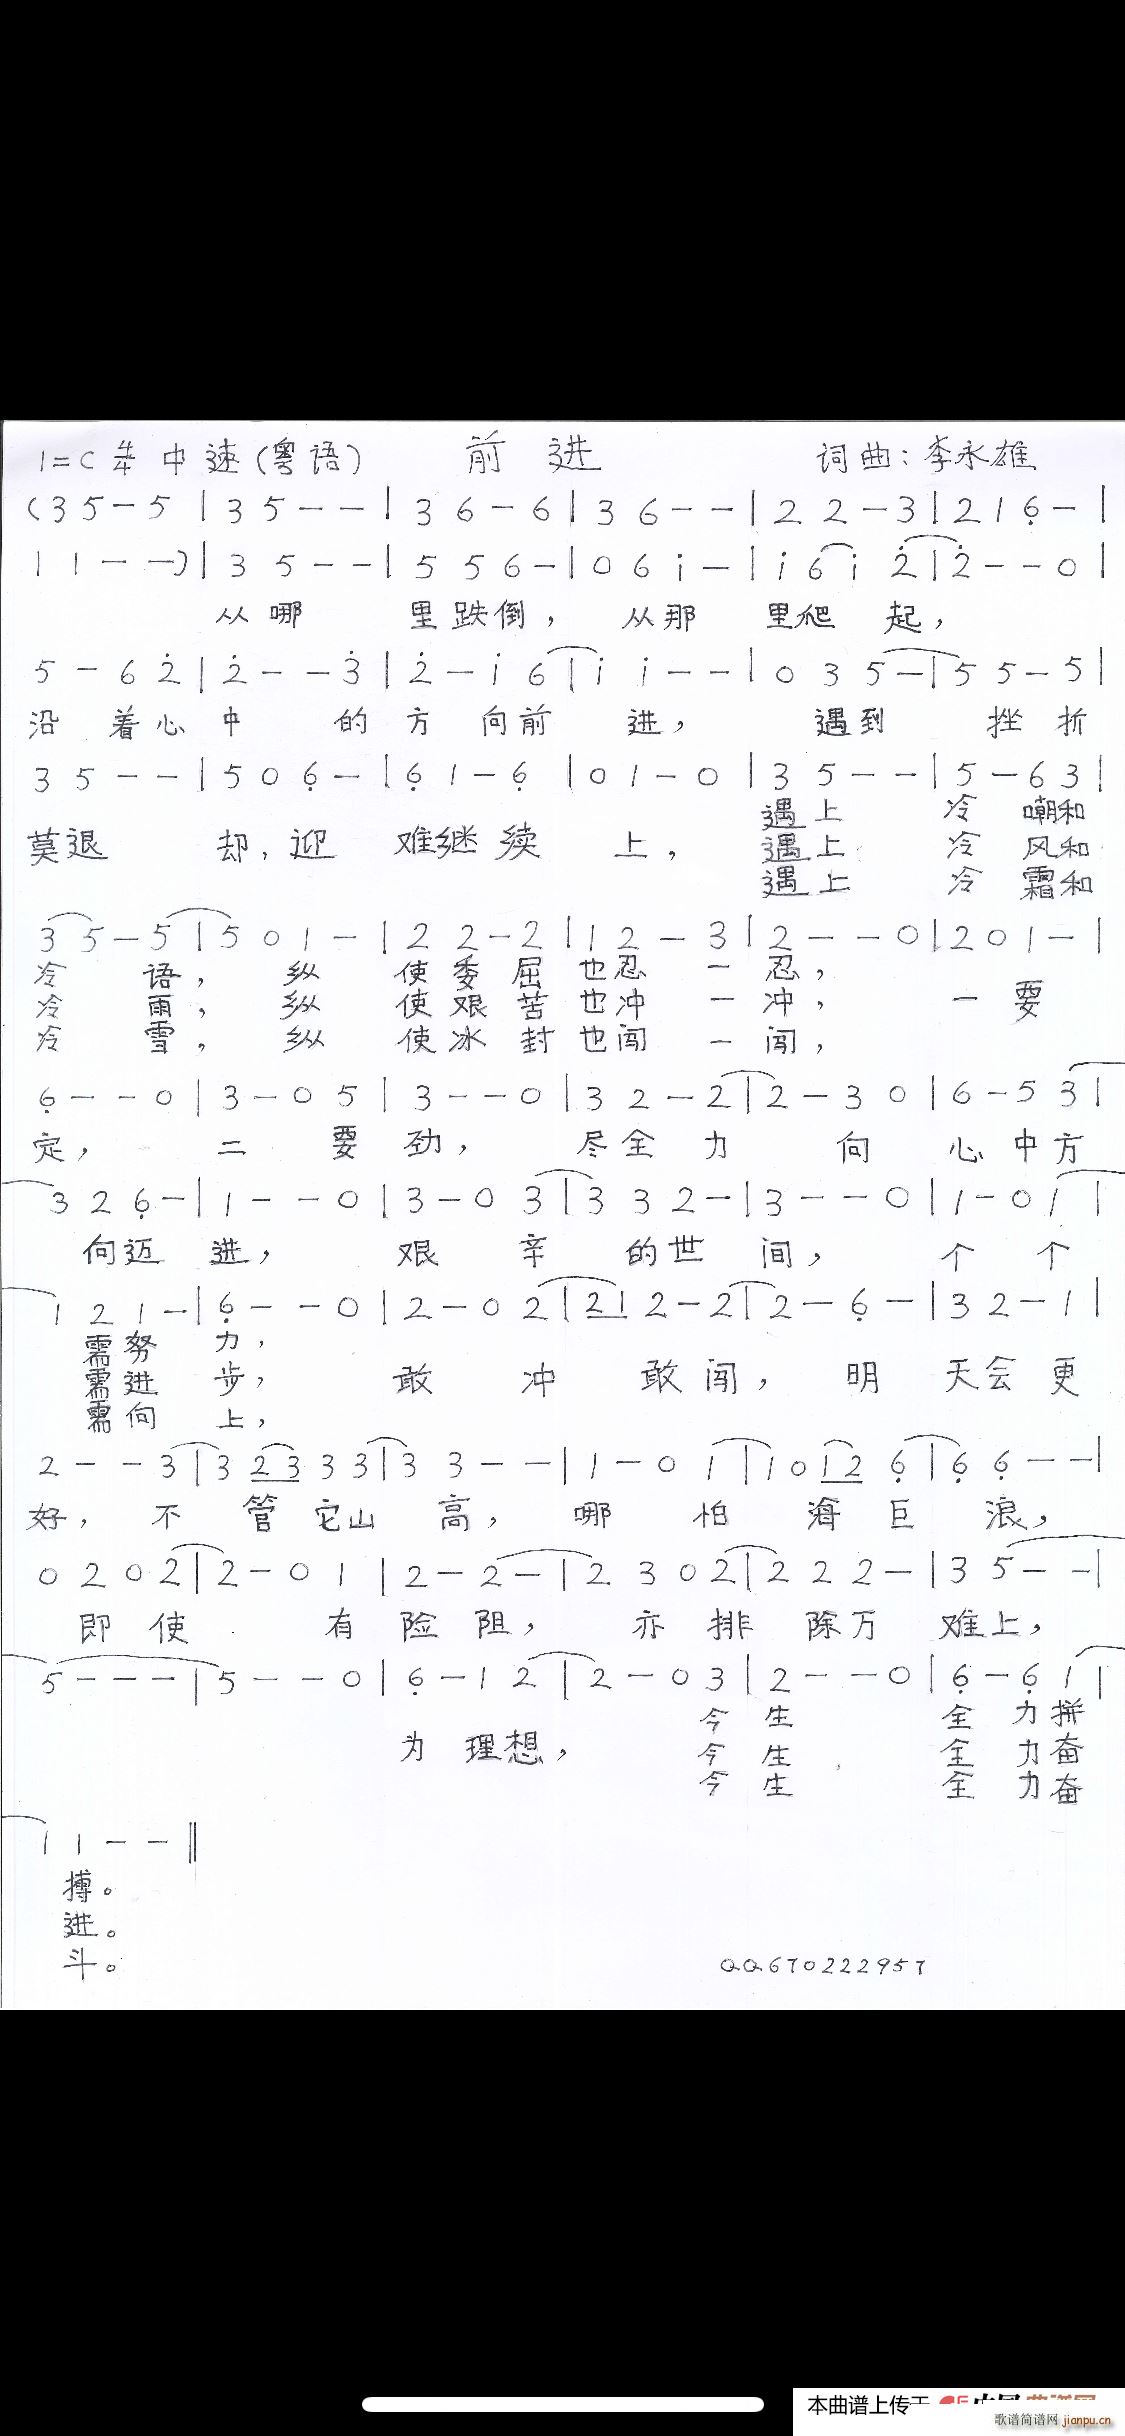 1=C 4/4 中速(粤语) 前进 词曲:李永雄
(3 5 - 5 | 3 5 - - | 3 6 - 6 | 3 6 - - | 2 2 - 3 | 2 1 6̣ - |
1 1 - -) | 3 5 - - | 5 5 6 - | 0 6 i - | i 6 i 2̇ | 2̇ - - 0 |
从哪 里跌倒, 从那 里爬 起,
5 - 6 2̇ | 2̇ - - 3̇ | 2̇ - i 6 | i i - - | 0 3 5 - | 5 5 - 5 |
沿 着心 中 的 方 向前 进, 遇到 挫 折
3 5 - - | 5 0 6̣ - | 6̣ 1 - 6̣ | 0 1 - 0 | 3 5 - - | 5 - 6 3 |
遇上 冷 嘲和
莫退 却, 迎 难继 续 上, 遇上 冷 风和
遇上 冷 霜和
3 5 - 5 | 5 0 1 - | 2 2 - 2 | 1 2 - 3 | 2 - - 0 | 2 0 1 - |
冷 语, 纵 使委 屈 也忍 一 忍,
冷 雨, 纵 使艰 苦 也冲 一 冲, 一 要
冷 雪, 纵 使冰 封 也闯 一 闯,
6̣ - - 0 | 3 - 0 5 | 3 - - 0 | 3 2 - 2 | 2 - 3 0 | 6 - 5 3 |
定, 二 要 劲, 尽全 力 向 心 中 方
3 2 6̣ - | 1 - - 0 | 3 - 0 3 | 3 3 2 - | 3 - - 0 | 1 - 0 1 |
向迈 进, 艰 辛 的世 间, 个 个
1 2 1 - | 6̣ - - 0 | 2 - 0 2 | 2 1 2 - 2 | 2 - 6̣ - | 3 2 - 1 |
需努 力,
需进 步, 敢 冲 敢闯, 明 天会 更
需向 上,
2 - - 3 | 3 2 3 3 3 | 3 3 - - | 1 - 0 1 | 1 0 1 2 6̣ | 6̣ 6̣ - - |
好, 不 管 它山 高, 哪 怕 海 巨 浪,
0 2 0 2 | 2 - 0 1 | 2 - 2 - | 2 3 0 2 | 2 2 2 - | 3 5 - - |
即 使 有 险 阻, 亦 排 除万 难上,
5 - - - | 5 - - 0 | 6̣ - 1 2 | 2 - 0 3 | 2 - - 0 | 6̣ - 6̣ 1 |
今 生 全 力拼
为 理想, 今 生 全 力奋
今 生 全 力奋
1 1 - - ‖
搏。
进。
斗。
QQ670222957
本曲谱上传于
歌谱简谱网 jianpu.cn